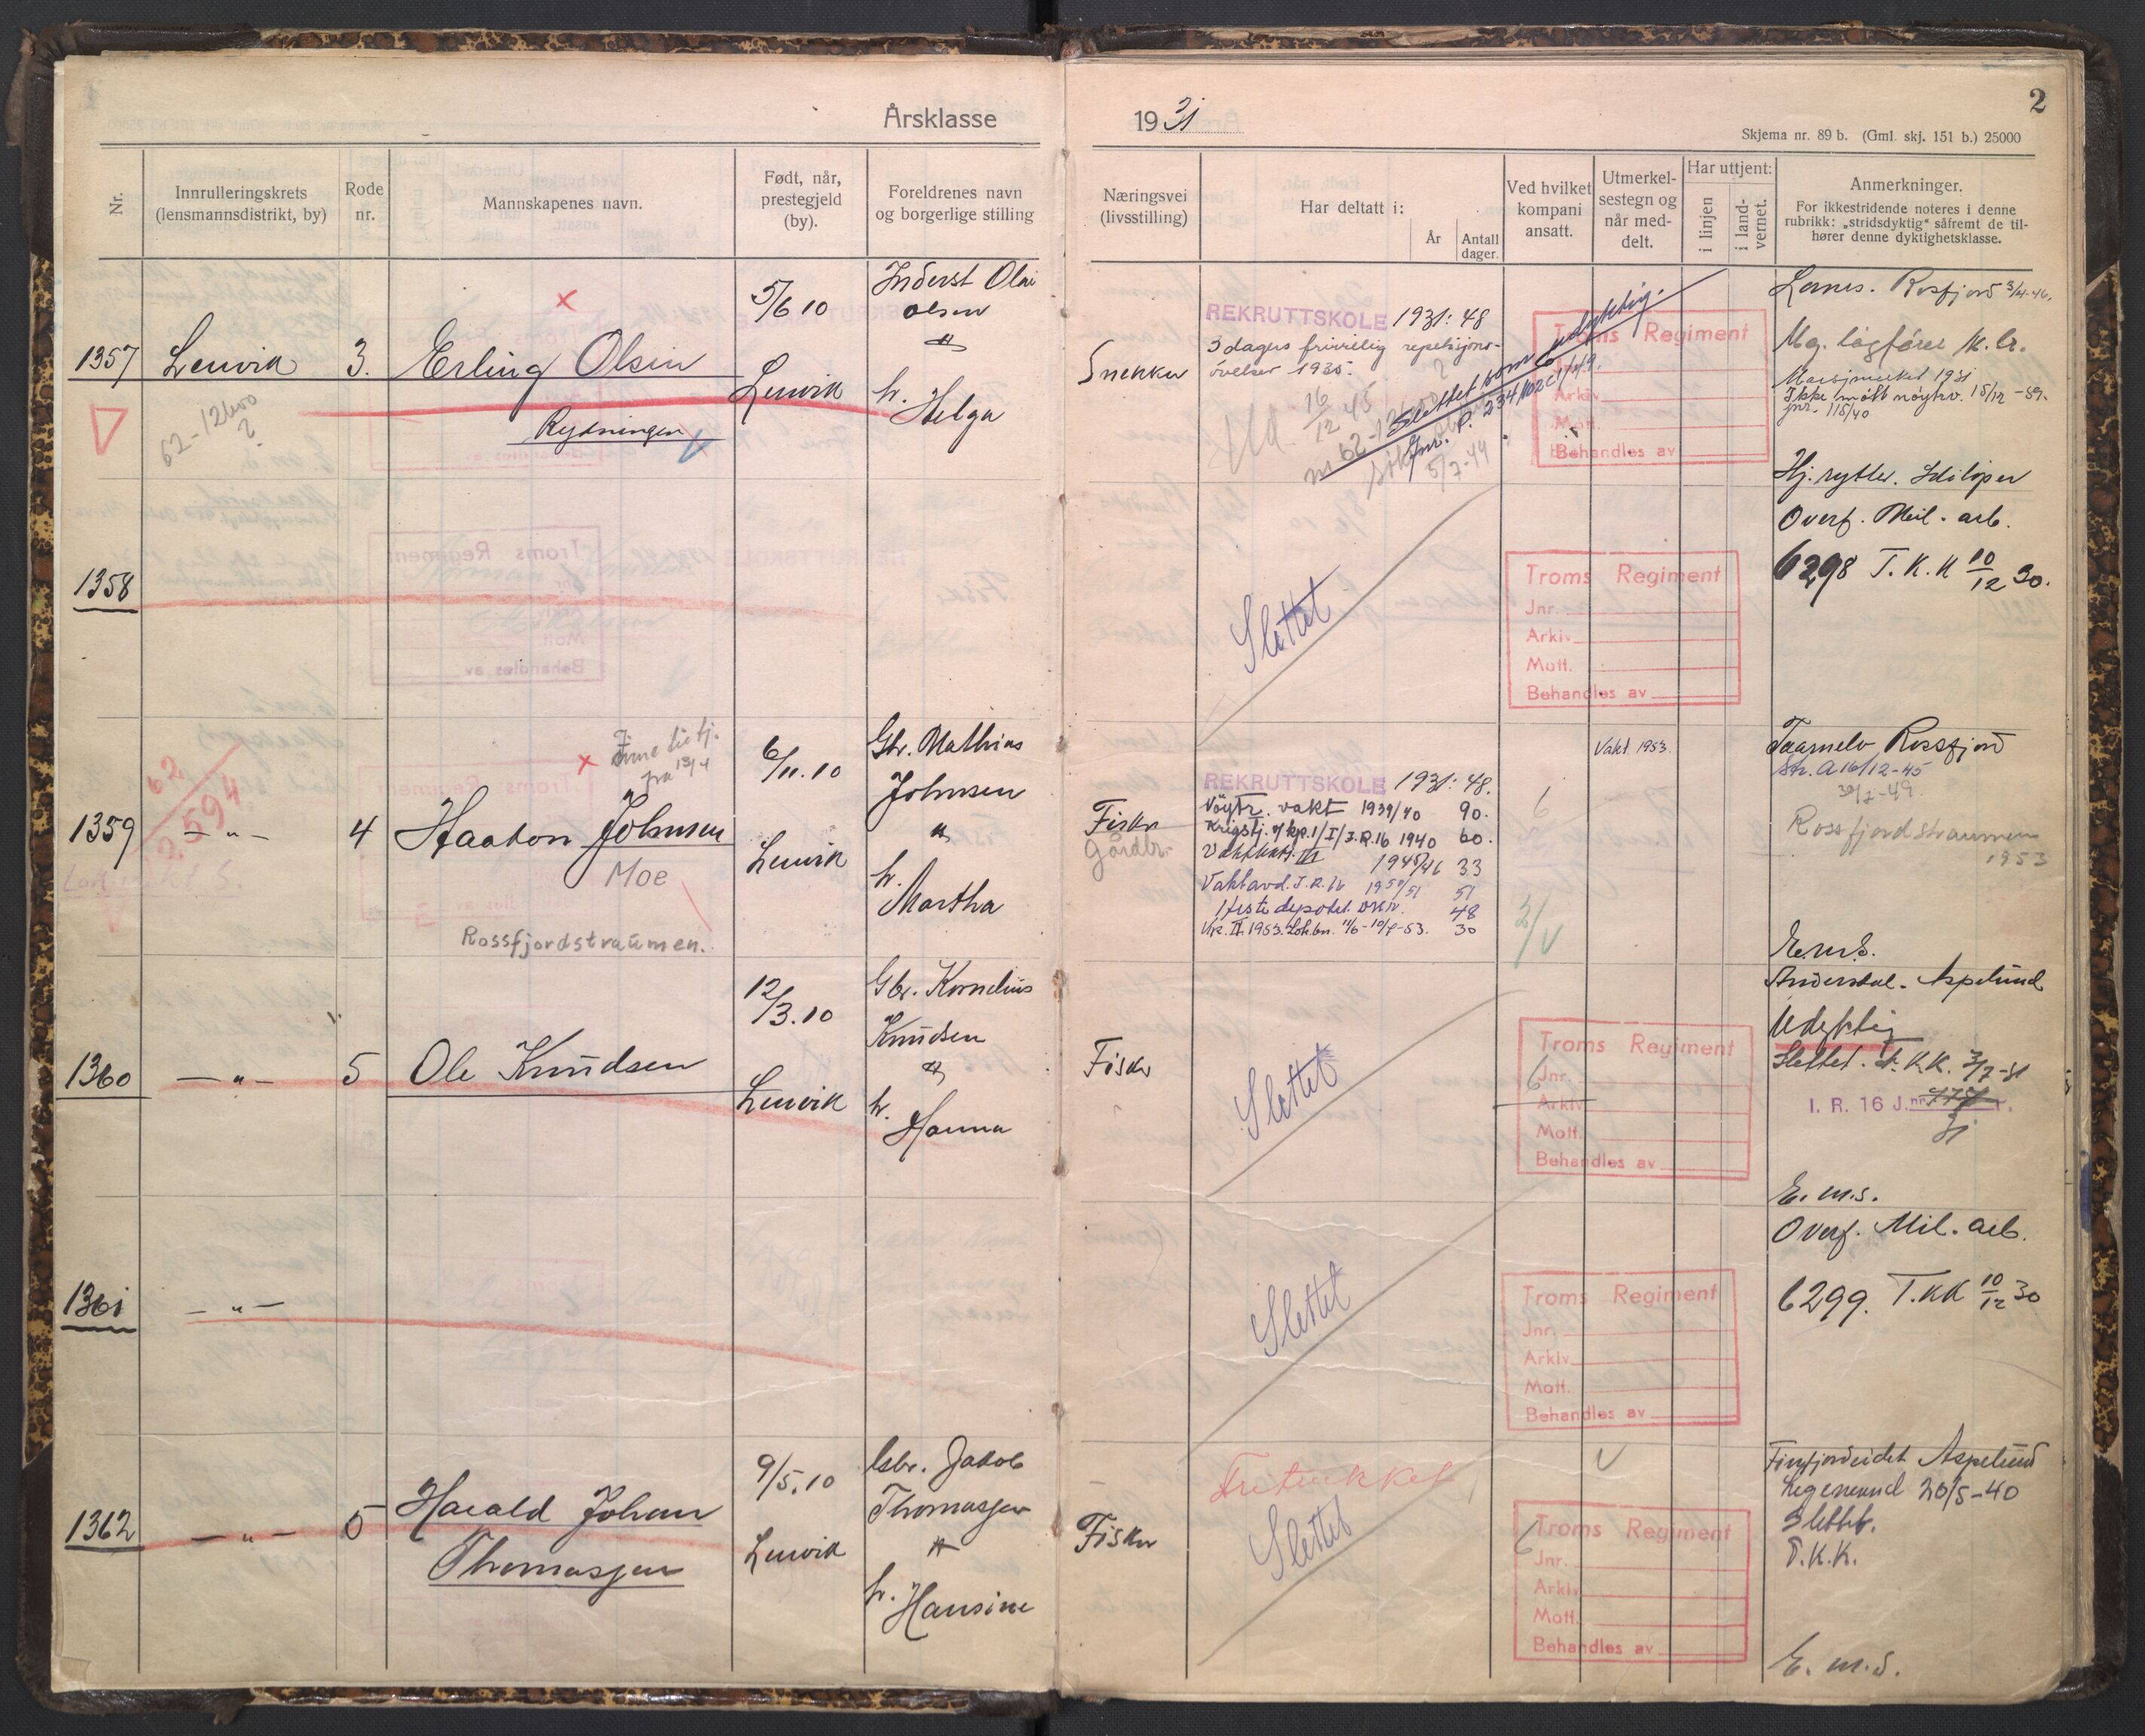 Årsklasse
1931
2
Skjema nr. 89 b. (Gml. skj. 151 b.) 25000
Nr.
Innrulleringskrets
(lensmannsdistrikt, by)
Rode
nr.
Mannskapenes navn.
Født, når,
prestegjeld
(by).
Foreldrenes navn
og borgerlige stilling
Næringsvei
(livsstilling)
Har deltatt i:
År
Antall
dager.
Ved hvilket
kompani
ansatt.
Utmerkel-
sestegn og
når med-
delt.
Har uttjent:
i linjen
i land-
vernet.
Anmerkninger.
For ikkestridende noteres i denne
rubrikk: „stridsdyktig" såfremt de til-
hører denne dyktighetsklasse.
1357
Lenvik
3.
Erling Olsen
Rydningen
62-12600
?
5/6 10
Lenvik
Inderst Olai
Olsen
h.
Helga
Snekker
REKRUTTSKOLE 1931: 48
3 dagers frivillig repetisjons-
øvelser 1935.
16/12 45
Slettet som udyktig.
5/7-44
Troms Regiment
Arkiv
Mott.
Behandles av
Rosfjord
Mg. lagfører K. lr.
Marsjmerket 1931
Ikke møtt nøytrv. 15/12-39.
jnr. 115/40
Hj. rytter. Skiløper
1358
Slettet
Troms Regiment
Jnr.
Arkiv
Mott.
Behandles av
Overf. Mil. arb.
6298 T.K.K 10/12 30.
1359
62
2594
— " —
4
Haakon Johnsen
Moe
Rossfjordstraumen.
fra 13/4
6/11.10
Lenvik
Gbr. Mathias
Johnsen
h.
Martha
Fisker
Gårdbr.
REKRUTTSKOLE 1931: 48.
Nøytr. vakt 1939/40 90.
Krigstj. v/kp. 1/I/I.R.16 1940 60.
1945/46 33
Vaktavd. I.R. 16 1950/51 51
48
1953. Lok.bn. 11/6-10/7-53. 30
6
Vakt 1953.
Taarnelv Rossfjord
Str. A 16/12-45
30/7-49.
Rossfjordstraumen
1953
E.m.s.
1360
— " —
5
Ole Knudsen
12/3.10
Lenvik
Gbr. Kornelius
Knudsen
h.
Hanna
Fisker
Slettet
6
Troms Regiment
Jnr.
Arkiv
Mott.
Behandles av
Anderdal - Aspelund
Udyktig
Slettet. T.K.K. 3/7-31
I. R. 16 J.nr.
31
E.m.s.
1361
— " —
Slettet
Troms Regiment
Jnr.
Arkiv
Mott.
Behandles av
Overf. Mil. arb.
6299. T.KK 10/12 30
1362
— " —
5
Harald Johan
Thomassen
9/5.10
Lenvik
Gbr. Jakob
Thomassen
h.
Hansine
Fisker
Fritrukket
Slettet
6
Troms Regiment
Jnr.
Arkiv
Mott.
Behandles av
Finfjordeidet Aspelund
Legenemnd 20/5-40
Slettet.
T.K.K.
E.m.s.